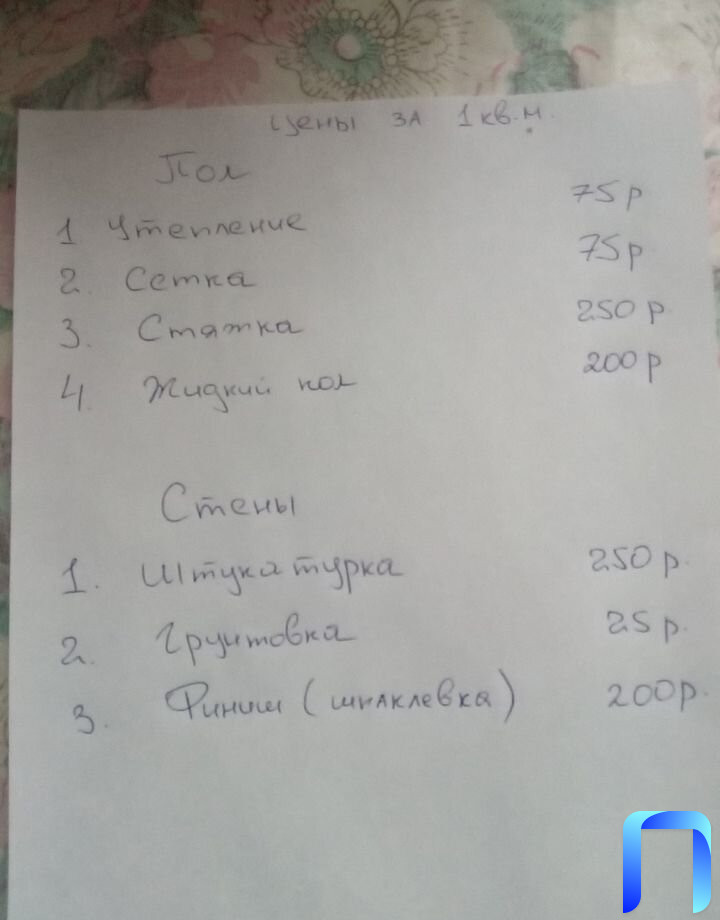 Цены за 1 кв.м.
Пол
1 Утепление 75 р
2. Сетка 75 р
3. Стяжка 250 р
4. Жидкий пол 200 р
Стены
1. Штукатурка 250 р.
2. Грунтовка 25 р.
3. Финиш (шпаклевка) 200 р.